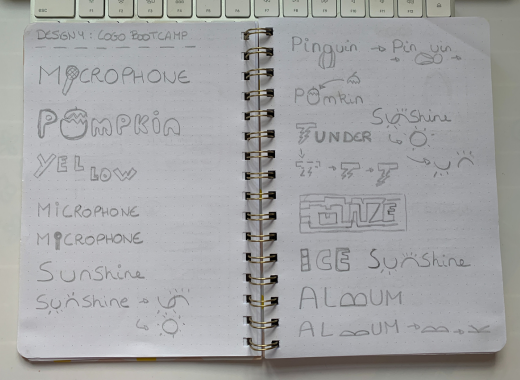 DESIGN 4: LOGO BOOTCAMP
MiCROPHONE
POmpKin
YELLOW
MiCROPHONE
MiCROPHONE
Sunshine
Sunshine
Pinguin Pin uin
POmKin
Sunshine
TUNDER
ICE Sunshine
ALBUM
ALBUM